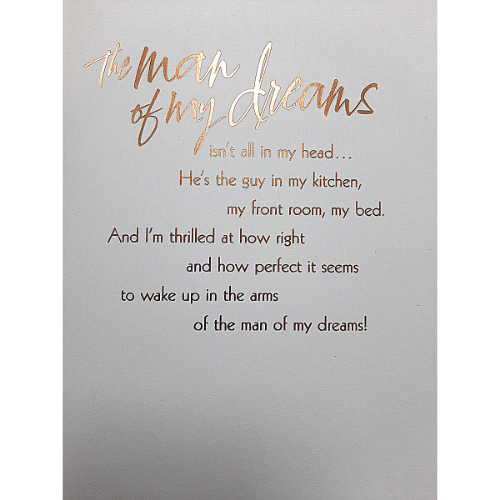 The man
of my dreams
isn't all in my head...
He's the guy in my kitchen,
my front room, my bed.
And I'm thrilled at how right
and how perfect it seems
to wake up in the arms
of the man of my dreams!